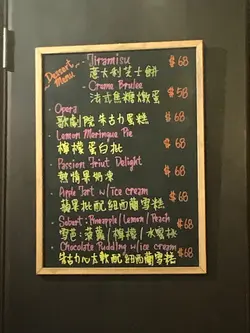 Dessert Menu
- Tiramisu $68
意大利芝士餅
- Crume Brulee $58
法式焦糖燉蛋
- Opera $68
歌劇院朱古力蛋糕
- Lemon Meringue Pie $68
檸檬蛋白批
- Passion Friut Delight $68
熱情果奶凍
- Apple Tart w/ice cream $68
蘋果批配紐西蘭雪糕
- Sobert: Pineapple/Lemon/Peach $68
雪芭: 菠蘿/檸檬/水蜜桃
- Chocolate Pudding w/ice cream $68
朱古力心太軟配紐西蘭雪糕